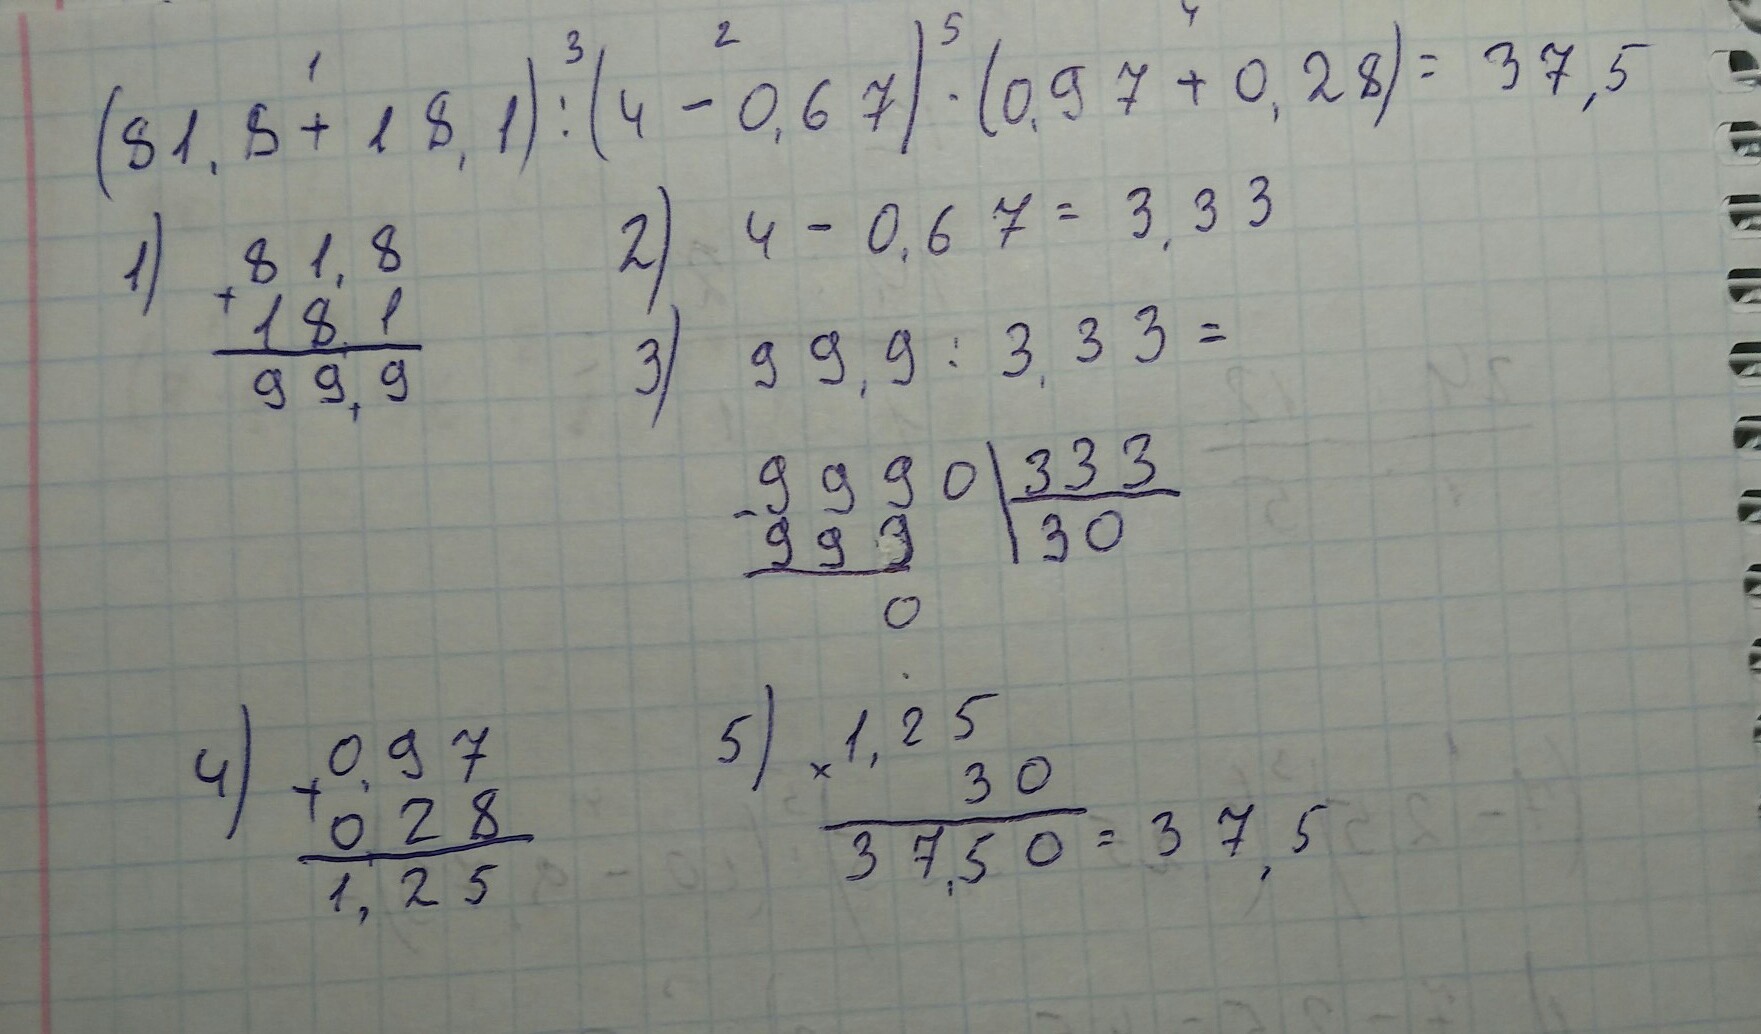 1 3 2 5 4
(81,8 + 18,1) : (4 - 0,67) · (0,97 + 0,28) = 37,5
1) + 81,8
18,1
99,9
2) 4 - 0,67 = 3,33
3) 99,9 : 3,33 =
- 9990 | 333
999 | 30
0
4) + 0,97
0 28
1,25
5) × 1,25
30
37,50 = 37,5